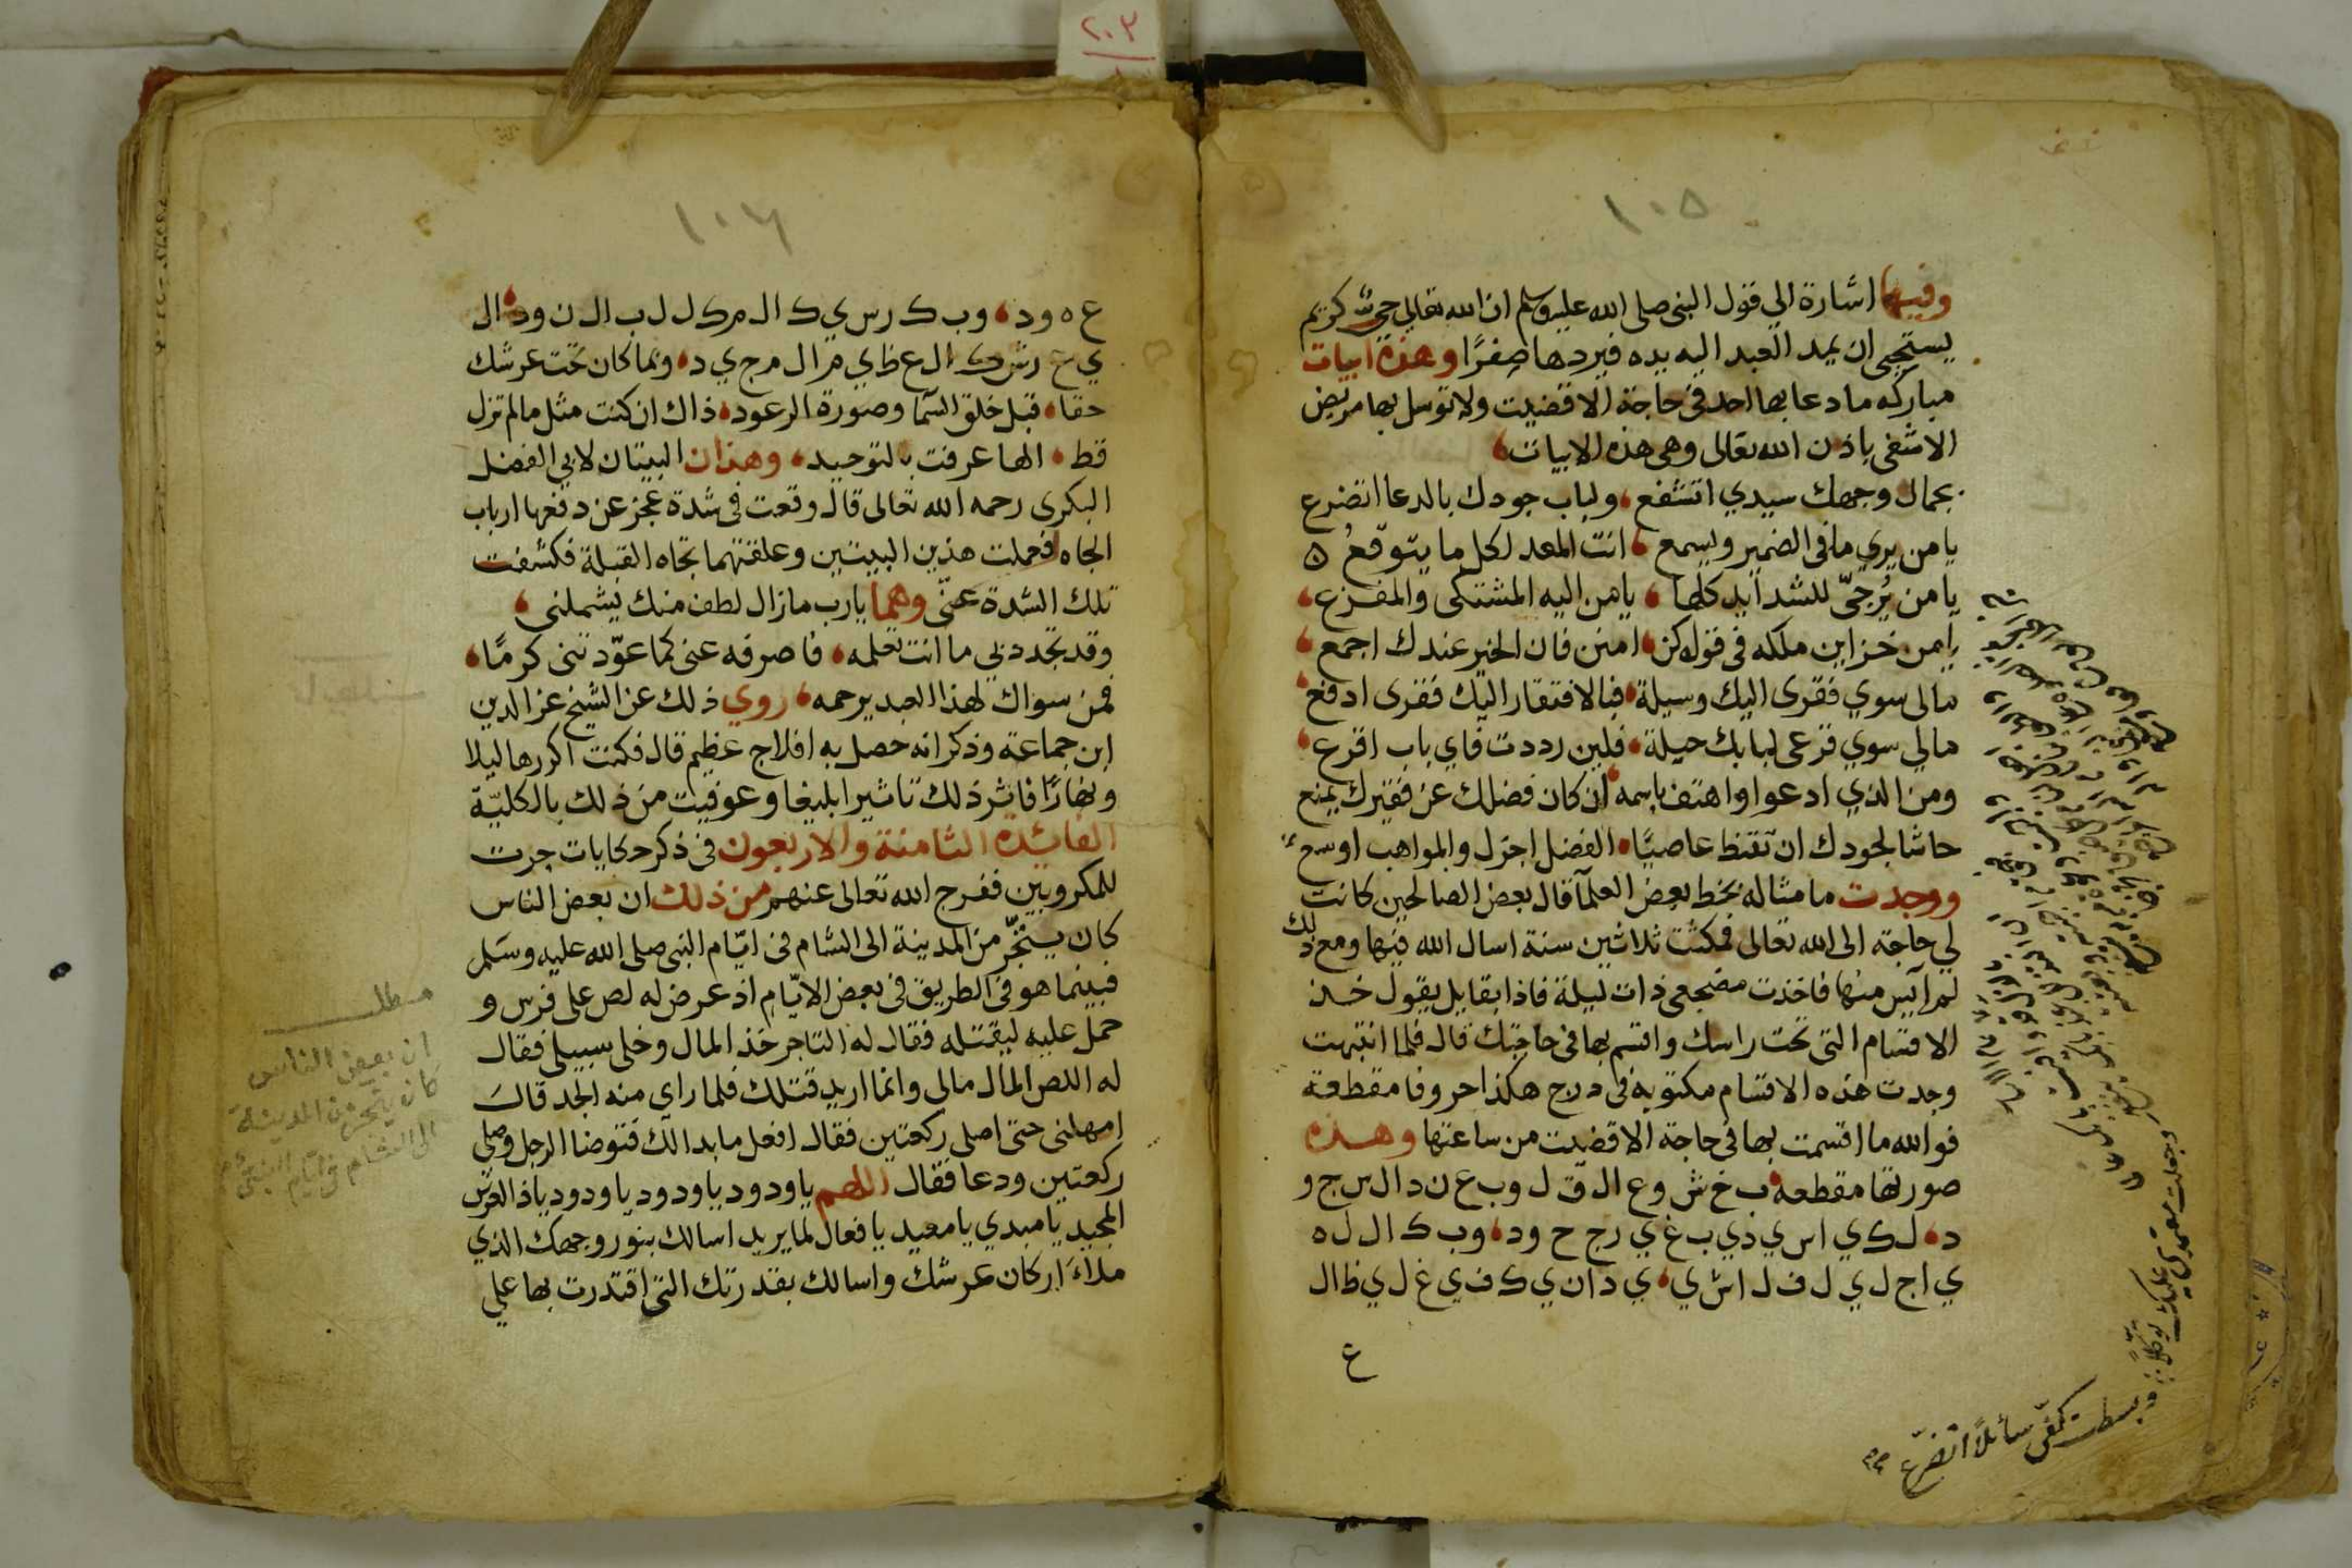 ٢٠٣
١٠٥
وفيها اشارة الي قول النبي صلى الله عليه وسلم ان الله تعالى حي كريم
يستحيي ان يمد العبد اليه يده فيردها صفرًا وهذه ابيات
مباركه ما دعا بها احد في حاجة الا قضيت ولا توسل بها مريض
الا شفي باذن الله تعالى وهي هذه الابيات
بجمال وجهك سيدي اتشفع ولباب جودك بالدعا اتضرع
يا من يري ما في الضمير ويسمع انت المعد لكل ما يتوقعُ ه
يا من يُرجىّ للشدايد كلها يا من اليه المشتكى والمفزع
يا من خزاين ملكه في قول كن امنن فان الخير عندك اجمع
مالى سوي فقرى اليك وسيلة فبالافتقار اليك فقرى ادفع
مالي سوي قرعى لبابك حيلة فلين رددت فاي باب اقرع
ومن الذي ادعوا واهتف باسمه ان كان فضلك عن فقيرك يمنع
حاشا لجودك ان تقنط عاصيًا الفضل اجزل والمواهب اوسع
ووجدت ما مثاله بخط بعض العلمآ قال بعض الصالحين كانت
لي حاجة الى الله تعالى فمكثت ثلاثين سنة اسال الله فيها ومع ذلك
لم آيس منها فاخذت مضجعى ذات ليلة فاذا بقايل يقول خذ
الاقسام التي تحت راسك واقسم بها في حاجتك قال فلما انتبهت
وجدت هذه الاقسام مكتوبة في درج هكذا حروفا مقطعة
فوالله ما اقسمت بها في حاجة الا قضيت من ساعتها وهذه
صورتها مقطعه ب خ ش و ع ال ق ل و ب ع ن د ال س ج و
د ل ك ي ا س ي د ي ب غ ي ر ج ح و د و ب ك ال ل ه
ي ا ج ل ي ل ف ل ا ش ي ي د ا ن ي ك ف ي غ ل ي ظ ال
ع
وجعلت معتمدي عليك توكلاً
وبسطت كفّي سائلاً اتضرّع
١٠٦
ع ه و د و ب ك ر س ي ك ال م ك ل ل ب ال ن و د ال
ي ع ر ش ك ال ع ظ ي م ال م ج ي د وبما كان تحت عرشك
حقا قبل خلق السما وصورة الرعود ذاك ان كنت مثل ما لم تزل
قط الها عرفت بالتوحيد وهذان البيتان لابي الفضل
البكرى رحمه الله تعالى قال وقعت في شدة عجز عن دفعها ارباب
الجاه فحملت هذين البيتين وعلقتهما تجاه القبلة فكشفت
تلك الشدة عنّي وهما يا رب ما زال لطف منك يشملني
وقد تجدد بي ما انت تعلمه فاصرفه عني كما عوّدتني كرمًا
فمن سواك لهذا العبد يرحمه روي ذلك عن الشيخ عز الدين
ابن جماعة وذكر انه حصل به افلاج عظيم قال فكنت اكررها ليلا
ونهارًا فاثر ذلك تاثيرا بليغا وعوفيت من ذلك بالكليّة
الفائدة الثامنة والاربعون في ذكر حكايات جرت
للمكروبين ففرج الله تعالى عنهم من ذلك ان بعض الناس
كان يتجّر من المدينة الى الشام في ايّام النبي صلى الله عليه وسلم
فبينما هو في الطريق في بعض الايّام اذ عرض له لص على فرس و
حمل عليه ليقتله فقال له التاجر خذ المال وخلى سبيلى فقال
له اللص المال مالى وانما اريد قتلك فلما راى منه الجد قال
امهلنى حتى اصلى ركعتين فقال افعل ما بدا لك فتوضا الرجل وصلى
ركعتين ودعا فقال اللهم يا ودود يا ودود يا ودود يا ذا العرش
المجيد يا مبدي يا معيد يا فعال لما يريد اسالك بنور وجهك الذي
ملاءَ اركان عرشك واسالك بقدرتك التي اقتدرت بها علي
مطلب
ان بعض الناس
كان يتجر من المدينة
الى الشام في ايّام النبي